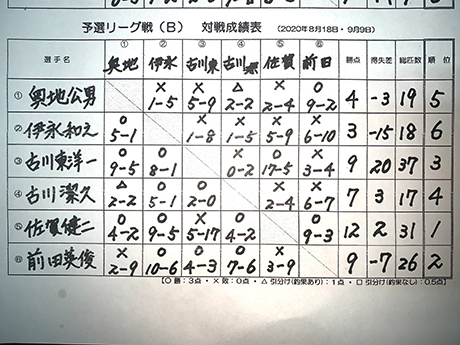 予選リーグ戦(B) 対戦成績表 (2020年8月18日・9月9日)
① ② ③ ④ ⑤ ⑥
選手名 奥地 伊永 古川東 古川潔 佐賀 前田 勝点 得失差 総匹数 順位
① 奥地公男 × 1-5 × 5-9 △ 2-2 × 2-4 ○ 9-2 4 -3 19 5
② 伊永和之 ○ 5-1 × 1-8 × 1-5 × 5-9 × 6-10 3 -15 18 6
③ 古川東洋一 ○ 9-5 ○ 8-1 × 0-2 ○ 17-5 × 3-4 9 20 37 3
④ 古川潔久 △ 2-2 ○ 5-1 ○ 2-0 × 2-4 × 6-7 7 3 17 4
⑤ 佐賀健二 ○ 4-2 ○ 9-5 × 5-17 ○ 4-2 ○ 9-3 12 2 31 1
⑥ 前田英俊 × 2-9 ○ 10-6 ○ 4-3 ○ 7-6 × 3-9 9 -7 26 2
[○ 勝:3点・× 敗:0点・△ 引分け(釣果あり):1点・□ 引分け(釣果なし):0.5点]